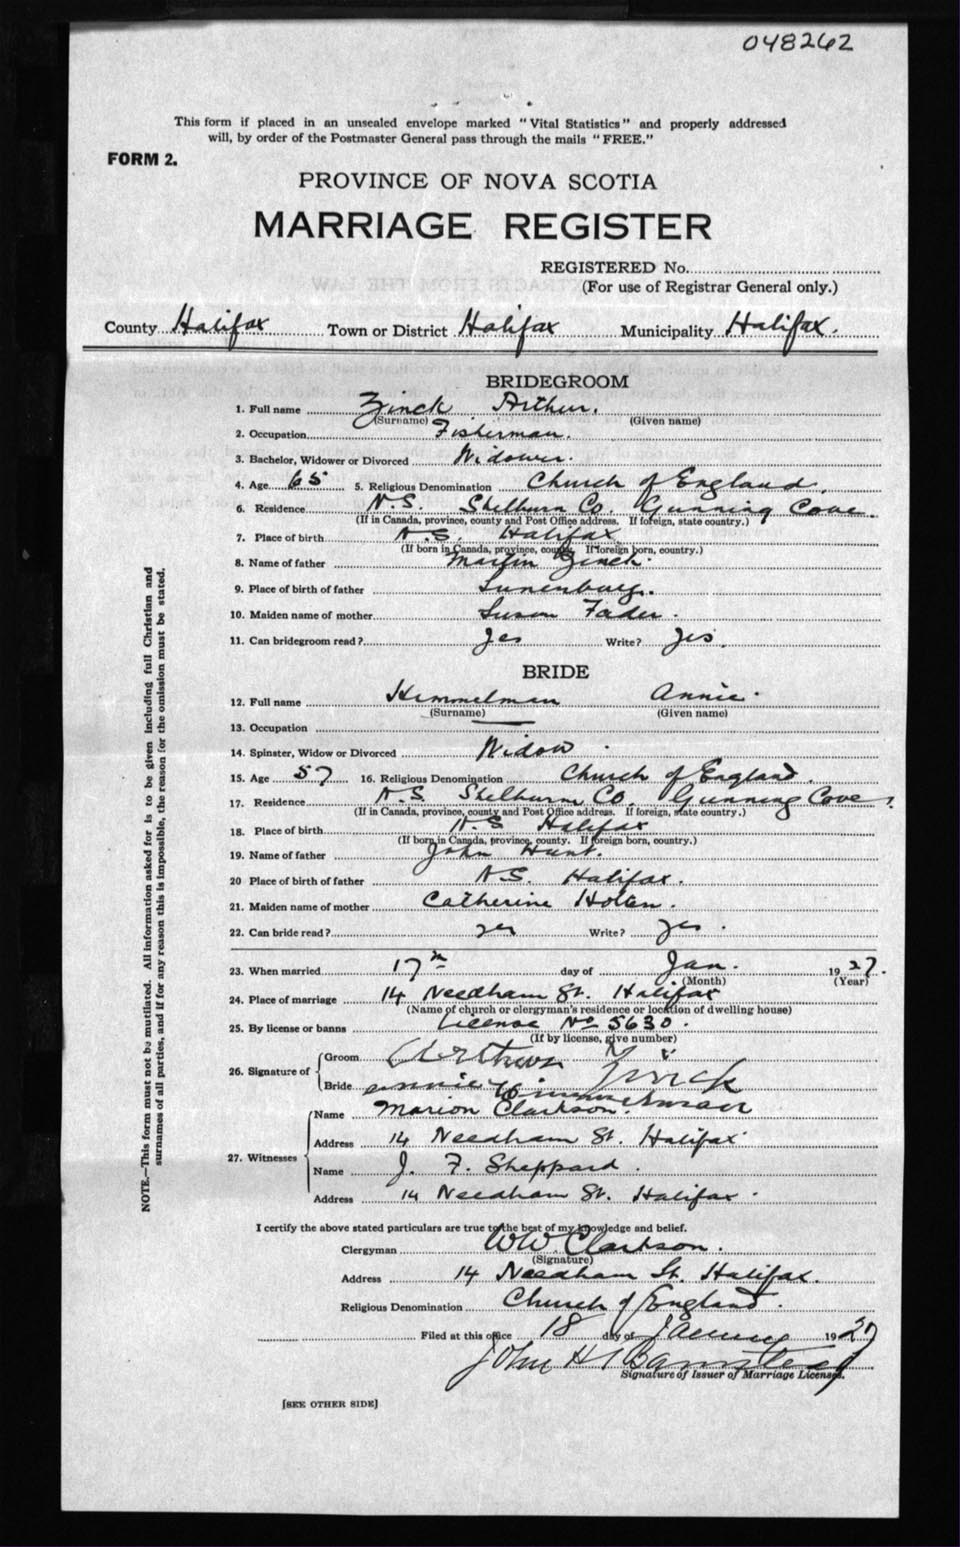 048262
This form if placed in an unsealed envelope marked "Vital Statistics" and properly addressed
will, by order of the Postmaster General pass through the mails "FREE."
FORM 2.
PROVINCE OF NOVA SCOTIA
MARRIAGE REGISTER
REGISTERED No.
(For use of Registrar General only.)
County Halifax Town or District Halifax Municipality Halifax.
BRIDEGROOM
1. Full name Zinck Arthur.
(Surname) (Given name)
2. Occupation Fisherman.
3. Bachelor, Widower or Divorced Widower.
4. Age 65 5. Religious Denomination Church of England.
6. Residence N.S. Shelburn Co. Gunning Cove.
(If in Canada, province, county and Post Office address. If foreign, state country.)
7. Place of birth N.S. Halifax
(If born in Canada, province, county. If foreign born, country.)
8. Name of father Martin Zinck.
9. Place of birth of father Lunenburg.
10. Maiden name of mother Susan Fader.
11. Can bridegroom read? Yes Write? Yes.
BRIDE
12. Full name Himmelman Annie.
(Surname) (Given name)
13. Occupation
14. Spinster, Widow or Divorced Widow.
15. Age 57 16. Religious Denomination Church of England.
17. Residence N.S. Shelburn Co. Gunning Cove.
(If in Canada, province, county and Post Office address. If foreign, state country.)
18. Place of birth N.S. Halifax
(If born in Canada, province, county. If foreign born, country.)
19. Name of father John Hunt.
20 Place of birth of father N.S. Halifax.
21. Maiden name of mother Catherine Holen.
22. Can bride read? Yes Write? Yes.
23. When married 17th day of Jan. 1927.
(Month) (Year)
24. Place of marriage 14 Needham St. Halifax
(Name of church or clergyman's residence or location of dwelling house)
25. By license or banns License No 5630.
(If by license, give number)
26. Signature of
Groom Arthur Zinck
Bride Annie Himmelman
27. Witnesses
Name Marion Clarkson.
Address 14 Needham St. Halifax.
Name J. F. Sheppard.
Address 14 Needham St. Halifax.
I certify the above stated particulars are true to the best of my knowledge and belief.
Clergyman W.W. Clarkson.
(Signature)
Address 14 Needham St. Halifax.
Religious Denomination Church of England.
Filed at this office 18 day of January 1927
John H
Signature of Issuer of Marriage Licenses.
[SEE OTHER SIDE]
NOTE.—This form must not be mutilated. All information asked for is to be given including full Christian and
surnames of all parties, and if for any reason this is impossible, the reason for the omission must be stated.